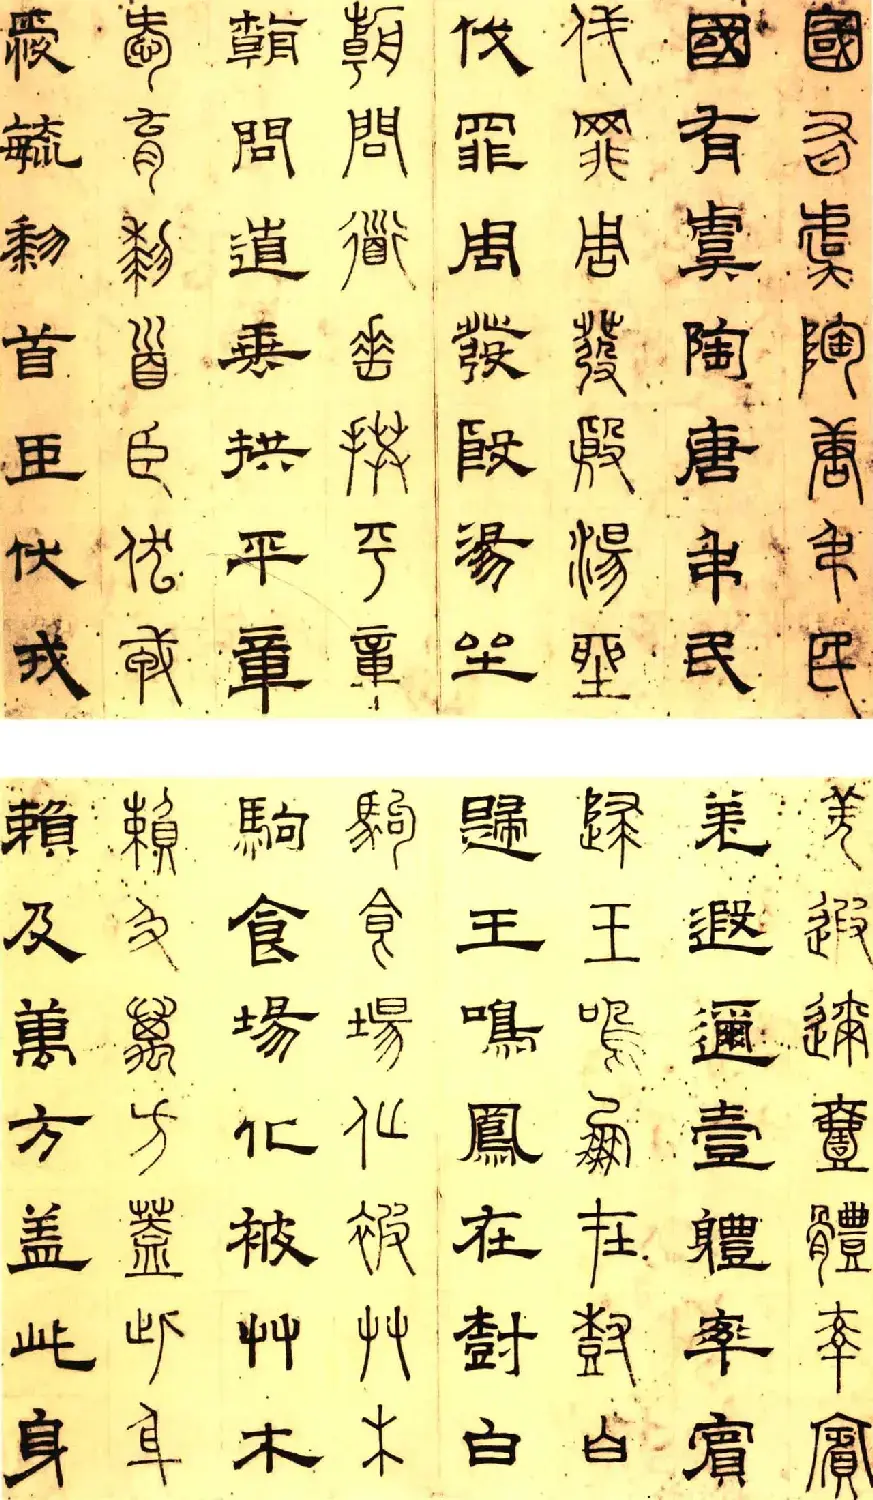 國有虞陶唐弔民
國有虞陶唐弔民
伐罪周發殷湯坐
伐罪周發殷湯坐
朝問道垂拱平章
朝問道垂拱平章
愛育黎首臣伏戎
愛毓黎首臣伏戎
羌遐邇壹體率賓
羌遐邇壹體率賓
歸王鳴鳳在樹白
歸王鳴鳳在樹白
駒食場化被艸木
駒食場化被艸木
賴及萬方蓋此身
賴及萬方盖此身